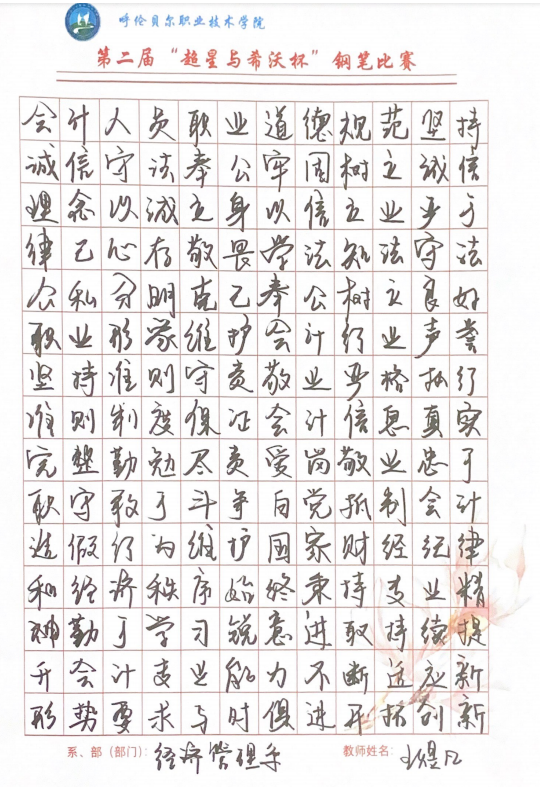 呼伦贝尔职业技术学院
第二届“超星与希沃杯”钢笔比赛
会计人员职业道德规范坚持
诚信守法奉公牢固树立诚信
理念以诚立身以信立业严于
律己心存敬畏学法知法守法
公私分明克己奉公树立良好
职业形象维护会计行业声誉
坚持准则守责敬业严格执行
准则制度保证会计信息真实
完整勤勉尽责爱岗敬业忠于
职守敢于斗争自觉抵制会计
造假行为维护国家财经纪律
和经济秩序始终秉持专业精
神勤于学习锐意进取持续提
升会计专业能力不断适应新
形势要求与时俱进开拓创新
系、部（部门）：经济管理系 教师姓名：